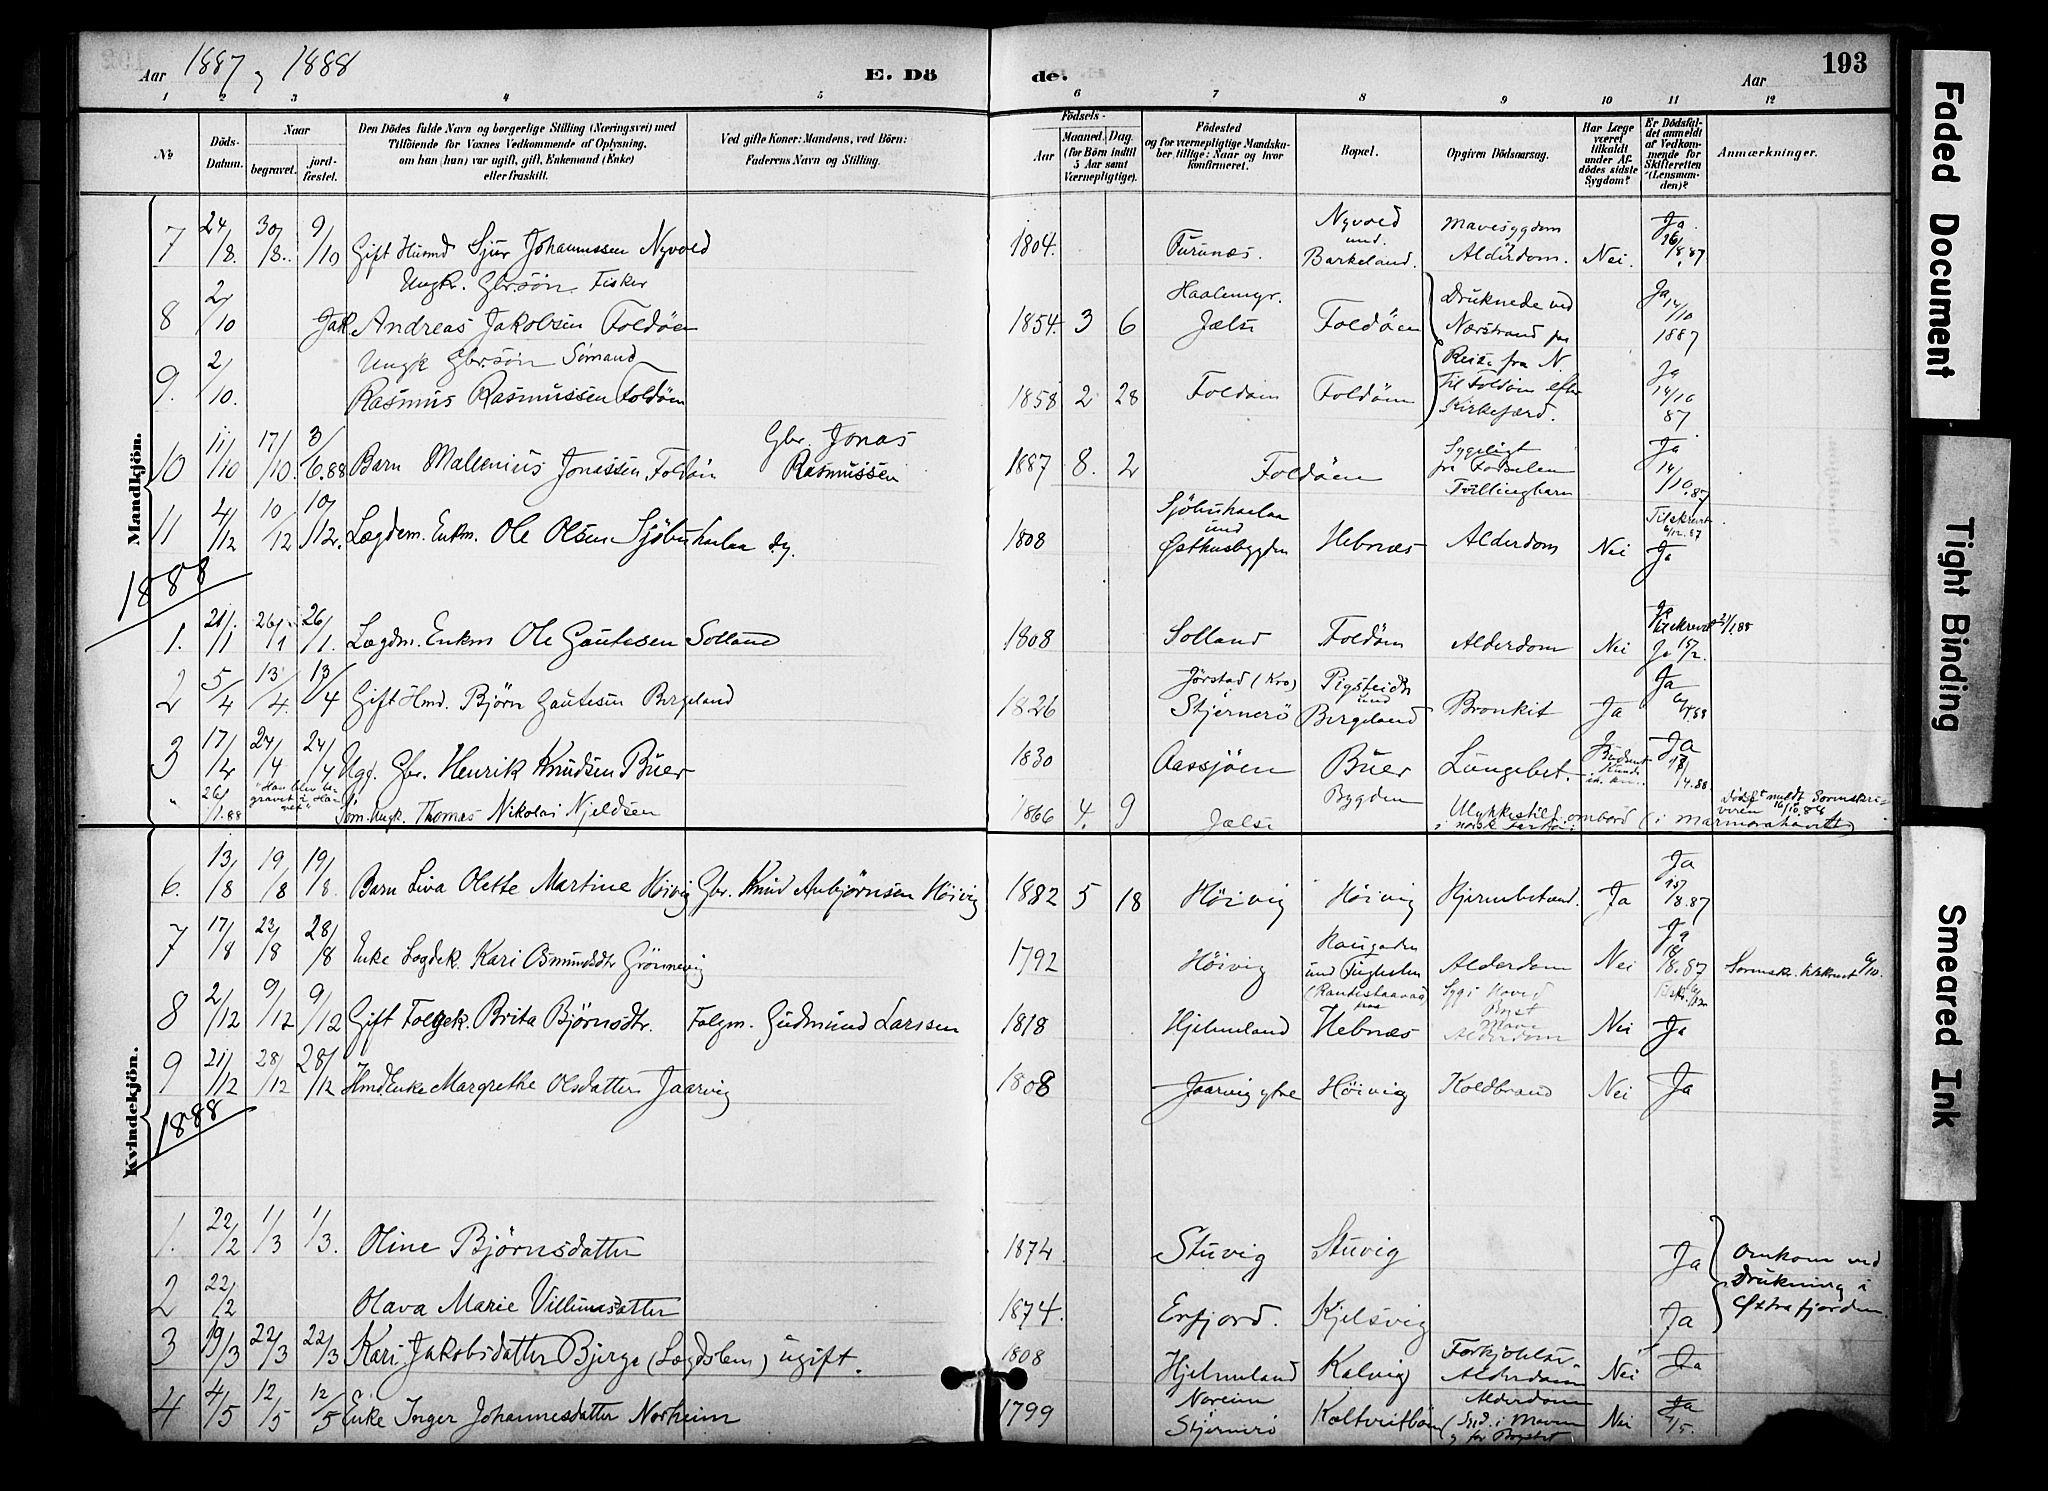 Aar 1887, 1888 E. Dö de. Aar 193
1 2 3 4 5 6 7 8 9 10 11 12
No
Döds-
Datum.
Naar
begravet.
jord-
fæstet.
Den Dödes fulde Navn og borgerlige Stilling (Næringsvei) med
Tilföiende for Voxnes Vedkommende af Oplysning,
om han (hun) var ugift, gift, Enkemand (Enke)
eller fraskilt.
Ved gifte Koner: Mandens, ved Börn:
Faderens Navn og Stilling.
Födsels-
Aar
Maaned. Dag.
(for Börn indtil
5 Aar samt
Værnepligtige).
Födested
og for værnepligtige Mandska-
ber tillige: Naar og hvor
konfirmeret.
Bopæl.
Opgiven Dödsaarsag.
Har Læge
været
tilkaldt
under Af-
dödes sidste
Sygdom?
Er Dödsfal-
det anmeldt
af Vedkom-
mende for
Skifteretten
(Lensman-
den)?
Anmærkninger.
Mandkjön.
7 24/8. 30/8. 9/10 Gift Husmd Sjur Johannessen Nyvold 1804. Furunæs. Nyvold und. Barkeland. Mavesygdom Alderdom. Nei. Ja. 26/8.87
Ungk. Gbr.sön. Fisker
8 2/10 Andreas Jakobsen Foldöen 1854. 3 6 Jælse Foldöen Druknede ved Nærstrand paa Ja 14/10 1887
Ungk Gbr.sön Sömand
9. 2/10. Rasmus Rasmussen Foldöen 1858 2 28 Foldöen Foldöen Reise fra N. til Foldöen efter Kirkefærd. Ja 14/10 87
10 11/10 17/10. 3/6.88 Barn Mallenius Jonassen Foldöen Gbr. Jonas Rasmussen 1887 8. 2 Foldöen Sygeligt fra Födselen Tvillingbarn Ja 14/10.87
11 4/12 10/12 10/12. Lægdem. Enkm. Ole Olsen 1808 und Østhusbygden Hebnæs Alderdom Nei Tilskrevet 6/12.87 Ja
1888
1. 21/1 26/1 26/1. Lægdm. Enkm Ole Gautesen Solland 1808 Solland Foldöen Alderdom Nei Ja 15/2.
2 5/4 13/4. 13/4 Gift Hmd. Björn Gautesen Bergeland 1826 Jörstad (Kro) Stjernerö und Bergeland Bronkit Ja Ja
3 17/4 24/4 24/4 Ugf. Gbr. Henrik Knudsen Büer 1830 Aassjöen Büer Lungebet. Ja
" 26/1.88 "Han blev be-gravet i Havet" Söm. Ungk. Thomas Nikolai Njeldsen 1866 4. 9 Jælse Bygden Ulykkestilf. ombord i norsk Fartöi (i Marmorahavet)
Kvindekjön.
6. 13/8 19/8 19/8. Barn Liva Olette Martine Höivig Gbr. Knud Anbjörnsen Höivig 1882 5 18 Höivig Höivig Hjernebetænd. Ja Ja 15/8.87
7 17/8 22/8 28/8 Enke Lægdek. Kari Osmundsdtr Grönnevig 1792 Höivig Alderdom Nei Ja 18/8.87
8 2/12 9/12 9/12 Gift Folgek. Brita Björnsdtr. Folgm. Gudmund Larssen 1818 Hjelmeland Hebnæs Syg i Hoved Bryst Mave Alderdom Nei Ja
9 21/12 28/12 28/12 Hmd Enke Margrethe Olsdatter Jaarvig 1808 Jaarvig ytre Höivig Koldbrand Nei Ja
1888
1. 22/2 1/3 1/3. Oline Björnsdatter 1874. Stuvig Stuvig Ja Omkom ved Drukning i Østrafjorden.
2 22/2 Olava Marie Villumsdatter 1874. Erfjord. Kjelsvig Ja
3 19/3 22/3 22/3 Kari Jakobsdatter Bjerge (Lægdslem) ugift. 1808 Hjelmeland Kalvig Forkjölelse. Alderdom Nei Ja
4 4/5 12/5 12/5 Enke Inger Johannesdatter Norheim 1799 Noreim Stjernerö Alderdom Nei Ja
Faded Document
Tight Binding
Smeared Ink